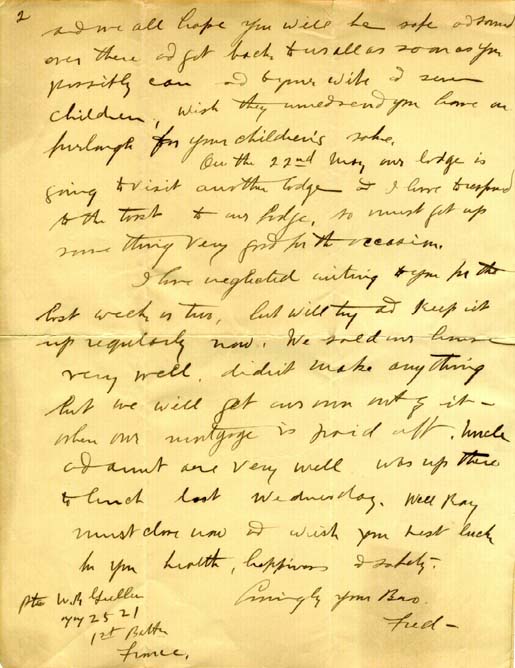 2
and we all hope you will be safe ad sound
over there ad get back to us all as soon as you
possibly can ad to your wife ad seven
children, wish they would send you home on
furlough for your children's sake.
On the 22nd May our lodge is
going to visit another lodge ad I have to respond
to the toast to our lodge, so must get up
something very good for the occasion.
I have neglected writing to you for the
last week or two, but will try ad keep it
up regularly now. We sold our house
very well, didn't make anything
but we will get our own out of it -
when our mortgage is paid off. Uncle
ad aunt are very well was up there
to lunch last Wednesday. Well Ray
must close now ad wish you best luck
in your health, happiness ad safety.
Lovingly your Bro.
Fred -
Pte W.R.
772521
1st Battn
France.